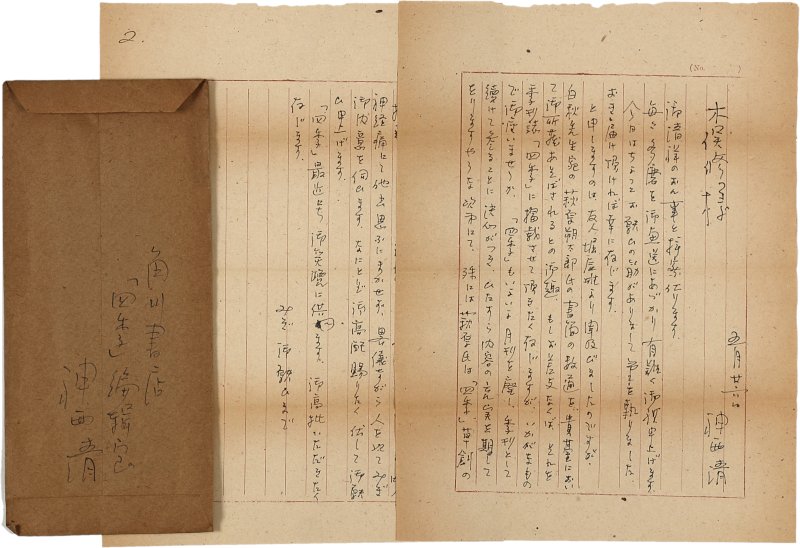 (No. )
五月廿六日
神西清
木俣修
御清祥のおん事と拝察仕ります。
毎々多磨を御恵送にあづかり有難く御礼申上げます。
今日はちょっとお願ひの筋がありまして筆を執りました。
おきゝ届け頂ければ幸に存じます。
と申しますのは、友人堀辰雄より聞及びましたのですが、
白秋先生宛の萩原朔太郎氏の書簡の数通を貴台におい
て御所蔵あそばされるとの御趣、もしお差支なくば、それを
季刊誌「四季」に掲載させて頂きたく存じますが、いかゞなもの
で御座いませうか。「四季」もいよいよ月刊を廃し、季刊として
続けて参ることに決心がつき、ひたすら内容の充実を期して
をりますやうな次第にて、殊には萩原氏は「四季」草創の
2.
神経痛にて他出思ふにまかせず、略儀ながら人を以てみぎ
御内意を伺ひます。なにとぞ御高配賜りたく伏して御願
ひ申上げます。
「四季」最近号御笑覧に供します。御高批いたゞきたく
存じます。
みぎ御願ひまで
角川書店
「四季」編輯室
神西清